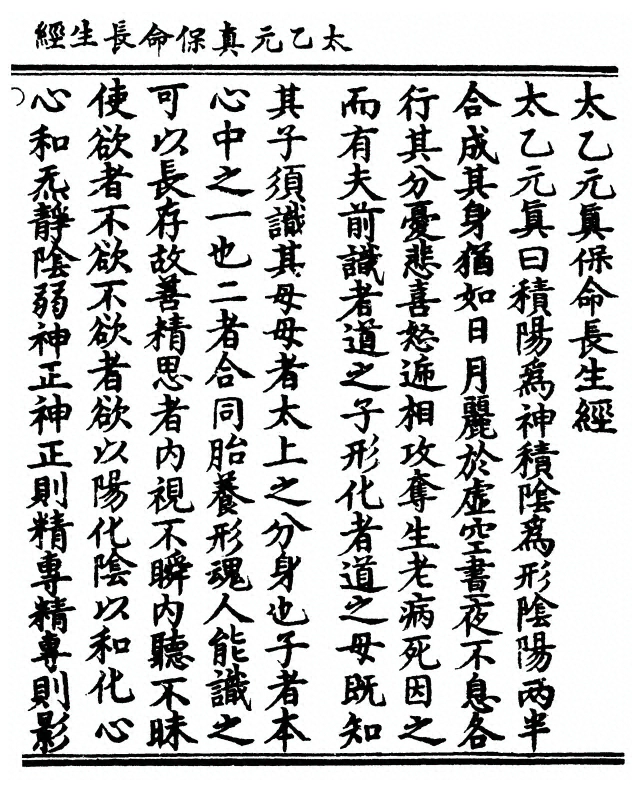 太乙元真保命長生經
太乙元眞保命長生經
太乙元眞曰積陽爲神積陰爲形陰陽两半
合成其身猶如日月麗於虛空晝夜不息各
行其分憂悲喜怒遞相攻奪生老病死因之
而有夫前識者道之子形化者道之母既知
其子須識其母母者太上之分身也子者本
心中之一也二者合同胎養形魂人能識之
可以長存故善精思者内視不瞬内聽不昧
使欲者不欲不欲者欲以陽化陰以和化心
心和炁靜陰弱神正神正則精專精專則影